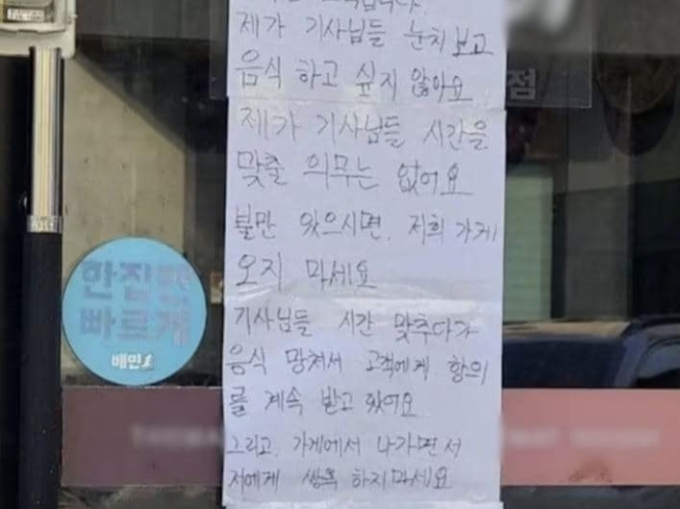 제가 기사님들 눈치 보고
음식 하고 싶지 않아요
제가 기사님들 시간을
맞출 의무는 없어요
불만 있으시면, 저희 가게
오지 마세요
기사님들 시간 맞추다가
음식 망쳐서 고객에게 항의
를 계속 받고 있어요
그리고, 가게에서 나가면서
저에게 쌍욕 하지마세요
점
한집만
빠르게
배민1